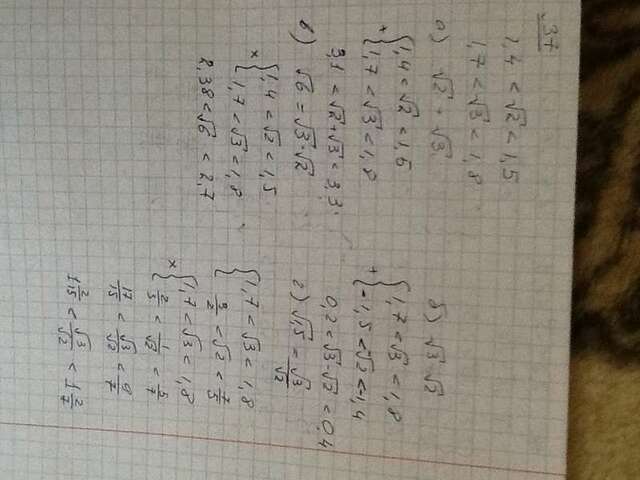 37
1,4 < √2 < 1,5
1,7 < √3 < 1,8
а) √2 + √3
{1,4 < √2 < 1,5
+ {1,7 < √3 < 1,8
3,1 < √2+√3 < 3,3
в) √6 = √3·√2
× {1,4 < √2 < 1,5
{1,7 < √3 < 1,8
2,38 < √6 < 2,7
б) √3 √2
{1,7 < √3 < 1,8
+ {-1,5 < √2 < -1,4
0,2 < √3-√2 < 0,4
г) √1,5 = √3/√2
{1,7 < √3 < 1,8
{ < √2 < 7/5
{1,7 < √3 < 1,8
× {2/3 < 1/√2 < 5/7
17/15 < √3/√2 < 9/7
1 2/15 < √3/√2 < 1 2/7